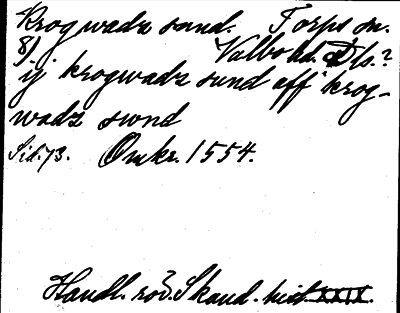 Krogwadz sund. Torps sn.
8) Valbo hd. Dls.?
ij krogwadz sund aff krog-
wadz swnd
Sid. 73. Omkr. 1554.
Handl. rör. Skand. hist. XXIX.